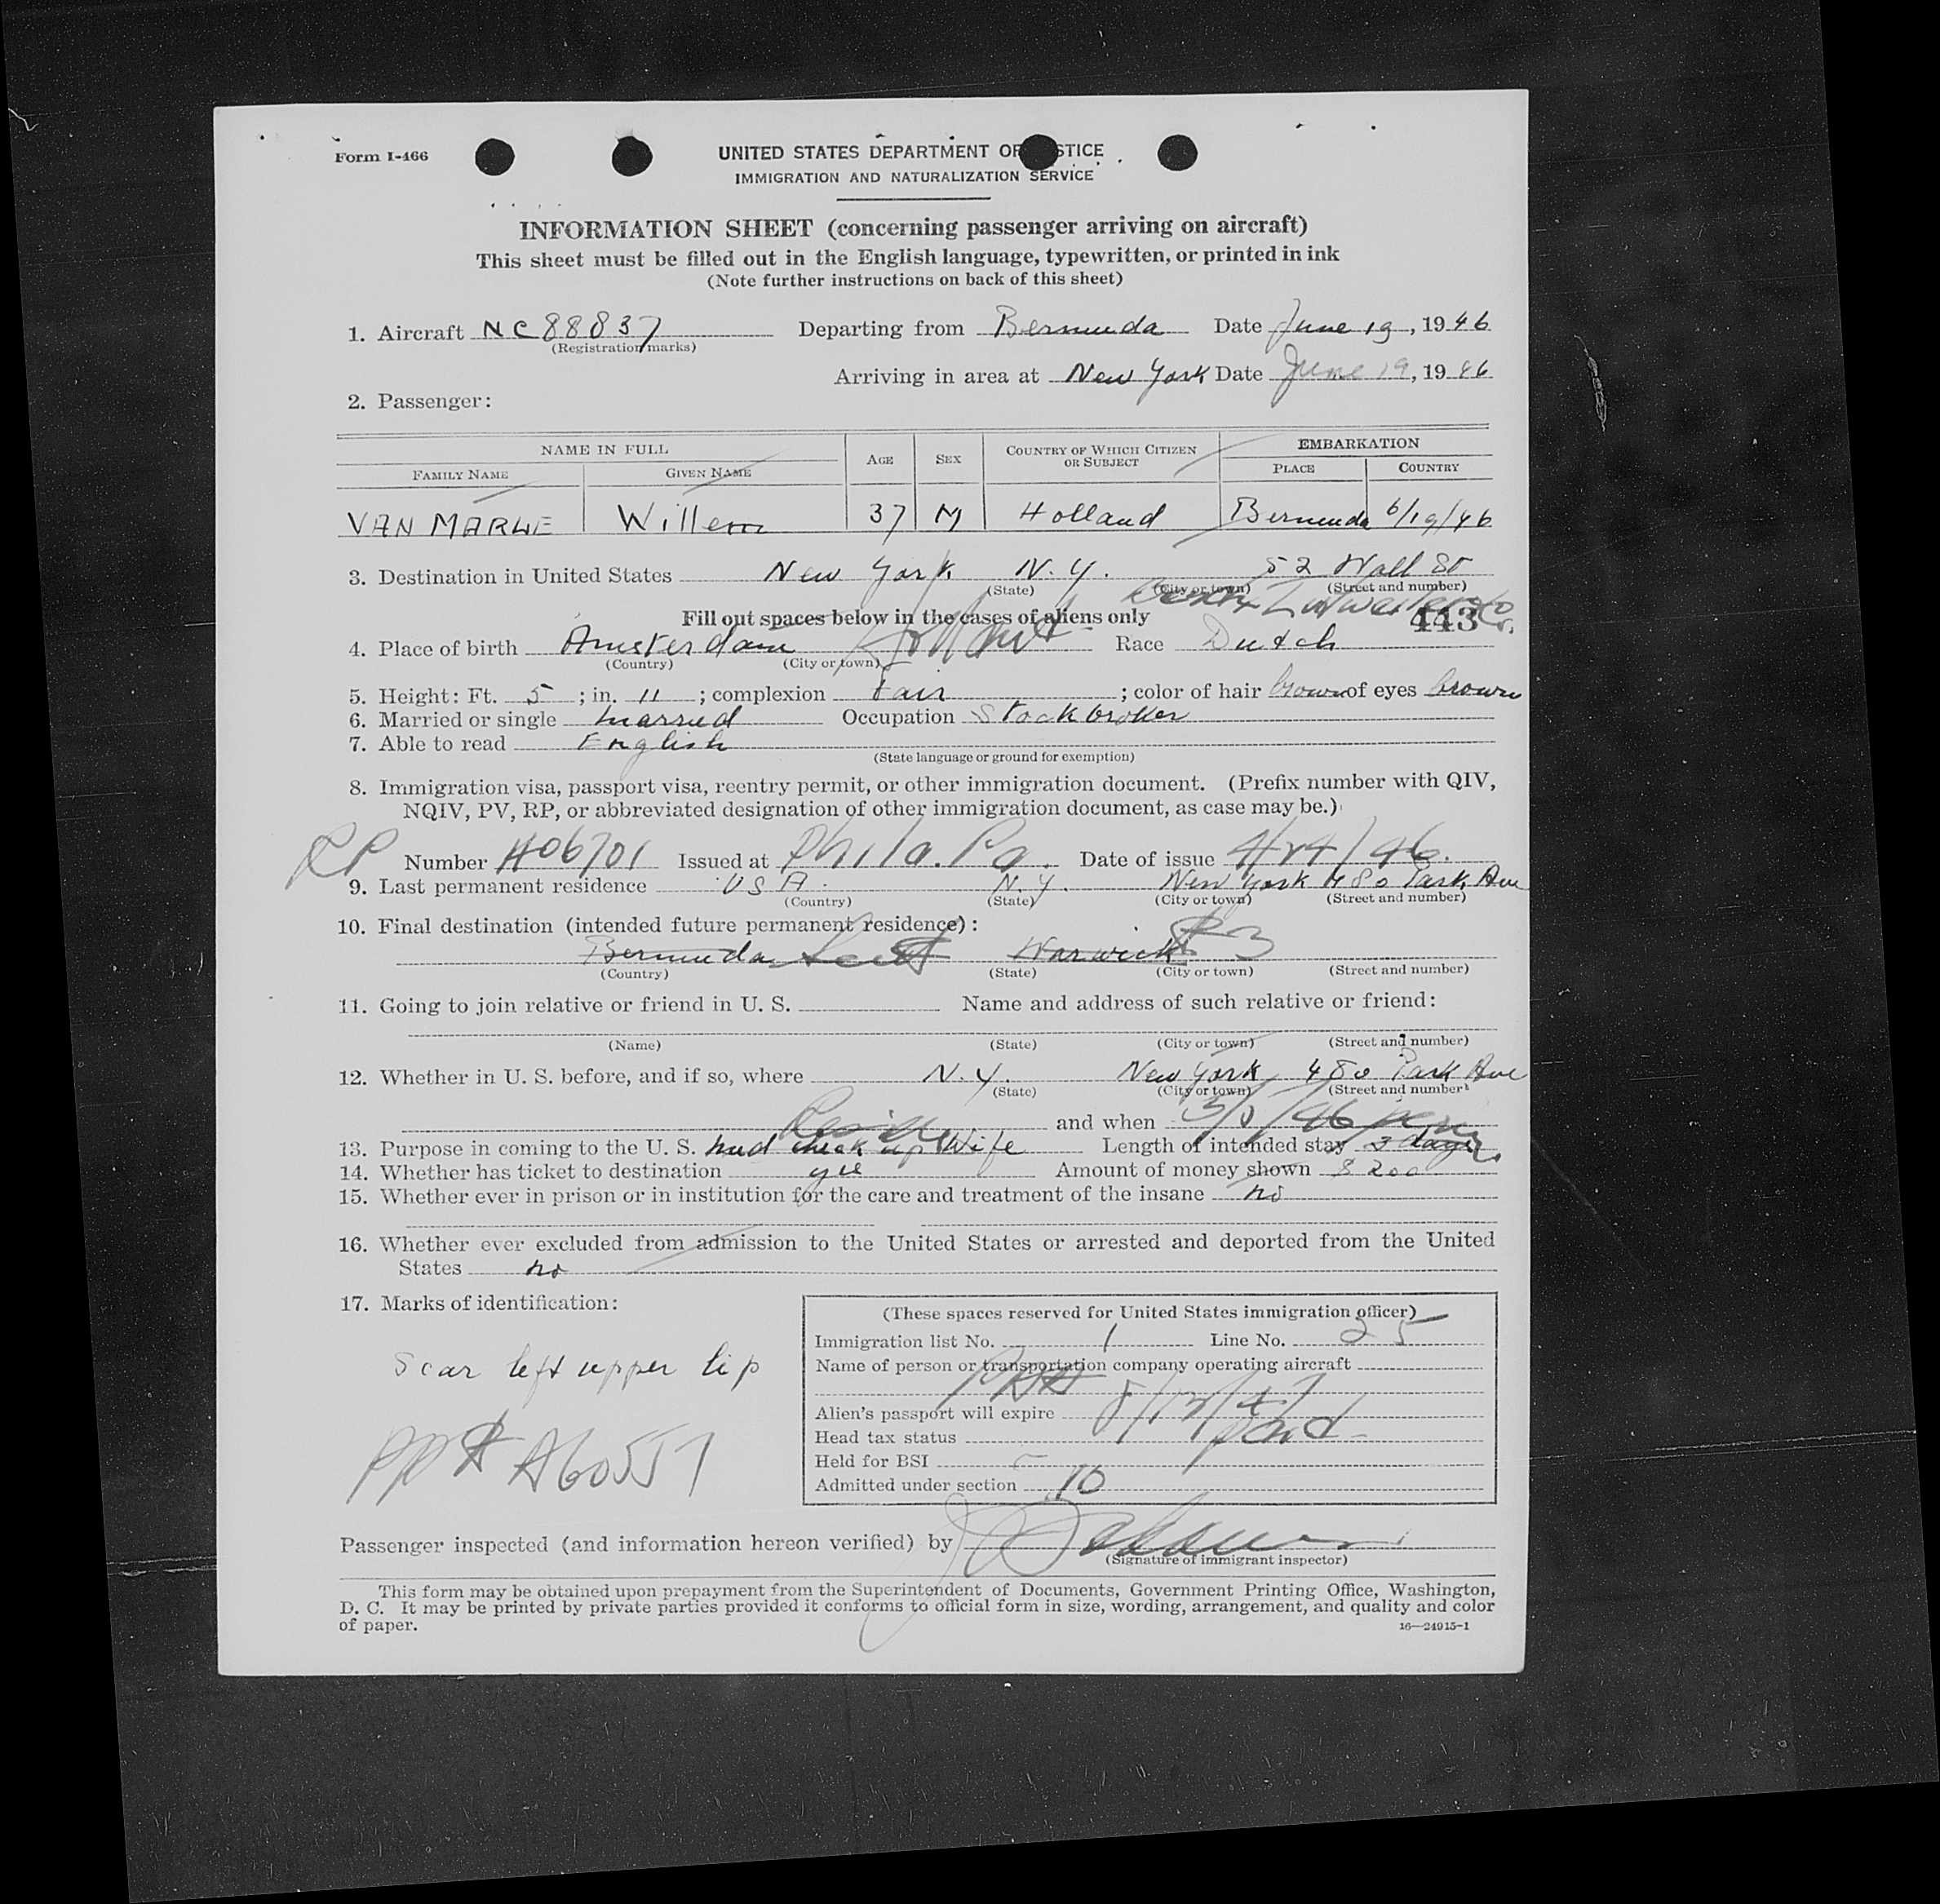 Form I-466
UNITED STATES DEPARTMENT OF JUSTICE
IMMIGRATION AND NATURALIZATION SERVICE
INFORMATION SHEET (concerning passenger arriving on aircraft)
This sheet must be filled out in the English language, typewritten, or printed in ink
(Note further instructions on back of this sheet)
1. Aircraft NC 88837 Departing from Bermuda Date June 19, 1946
(Registration marks)
Arriving in area at New York Date June 19, 1946
2. Passenger:
NAME IN FULL AGE SEX COUNTRY OF WHICH CITIZEN OR SUBJECT EMBARKATION
FAMILY NAME GIVEN NAME PLACE COUNTRY
VAN MARLE Willem 37 M Holland Bermuda 6/19/46
3. Destination in United States New York N.Y. 52 Wall St
(State) (City or town) (Street and number)
Fill out spaces below in the cases of aliens only 443
4. Place of birth Amsterdam Holland Race Dutch
(Country) (City or town)
5. Height: Ft. 5; in. 11; complexion Fair; color of hair brown of eyes brown
6. Married or single married Occupation Stockbroker
7. Able to read English
(State language or ground for exemption)
8. Immigration visa, passport visa, reentry permit, or other immigration document. (Prefix number with QIV,
NQIV, PV, RP, or abbreviated designation of other immigration document, as case may be.)
RP Number Issued at Phila. Pa. Date of issue 4/24/46.
9. Last permanent residence USA. N.Y. New York 480 Park Ave
(Country) (State) (City or town) (Street and number)
10. Final destination (intended future permanent residence):
Bermuda Warwick
(Country) (State) (City or town) (Street and number)
11. Going to join relative or friend in U. S. Name and address of such relative or friend:
(Name) (State) (City or town) (Street and number)
12. Whether in U. S. before, and if so, where N.Y. New York 480 Park Ave
(State) (City or town) (Street and number)
and when
13. Purpose in coming to the U. S. med check up Wife Length of intended stay 3 days
14. Whether has ticket to destination yes Amount of money shown $200
15. Whether ever in prison or in institution for the care and treatment of the insane no
16. Whether ever excluded from admission to the United States or arrested and deported from the United
States no
17. Marks of identification:
Scar left upper lip
PP# A60557
(These spaces reserved for United States immigration officer)
Immigration list No. 1 Line No. 25
Name of person or transportation company operating aircraft
PAA
Alien's passport will expire
Head tax status
Held for BSI
Admitted under section 10
Passenger inspected (and information hereon verified) by
(Signature of immigrant inspector)
This form may be obtained upon prepayment from the Superintendent of Documents, Government Printing Office, Washington,
D. C. It may be printed by private parties provided it conforms to official form in size, wording, arrangement, and quality and color
of paper.
16—24915-1